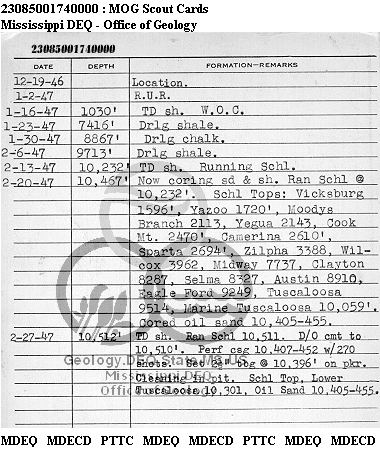 23085001740000 : MOG Scout Cards
Mississippi DEQ - Office of Geology
23085001740000
DATE DEPTH FORMATION—REMARKS
12-19-46 Location.
1-2-47 R.U.R.
1-16-47 1030' TD sh. W.O.C.
1-23-47 7416' Drlg shale.
1-30-47 8867' Drlg chalk.
2-6-47 9713' Drlg shale.
2-13-47 10,232' TD sh. Running Schl.
2-20-47 10,467' Now coring sd & sh. Ran Schl @
10,232'. Schl Tops: Vicksburg
1596', Yazoo 1720', Moodys
Branch 2113, Yegua 2143, Cook
Mt. 2470', Camerina 2610',
Sparta 2694', Zilpha 3388, Wil-
cox 3962, Midway 7737, Clayton
8287, Selma 8327, Austin 8910,
Eagle Ford 9249, Tuscaloosa
9514, Marine Tuscaloosa 10,059'.
Cored oil sand 10,405-455.
2-27-47 10,512' TD sh. Ran Schl 10,511. D/O cmt to
10,510'. Perf csg 10,407-452 w/270
shots. Set 2½" tbg @ 10,396' on pkr.
Cleaning in pit. Schl Top, Lower
Tuscaloosa 10,301, Oil Sand 10,405-455.
Geology.DEQ.State.MS.US
Mississippi DEQ
Office of Geology
MDEQ MDECD PTTC MDEQ MDECD PTTC MDEQ MDECD